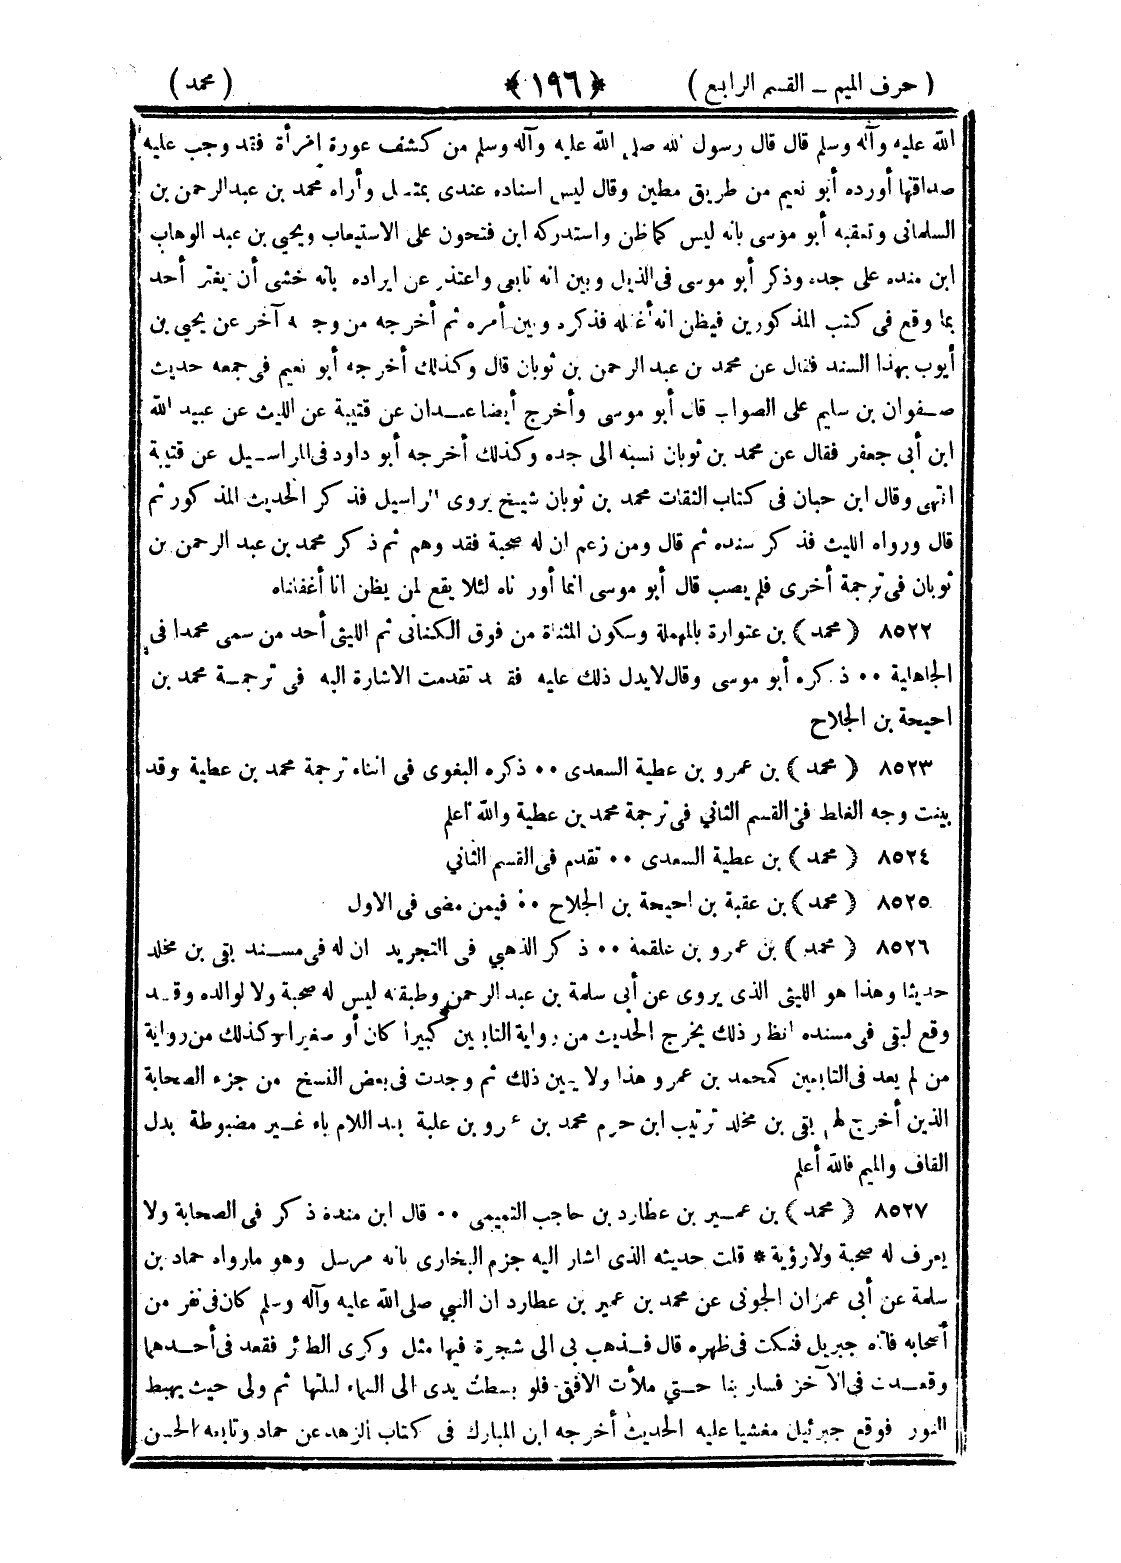 ( حرف الميم ـ القسم الرابع ) ﴿ ١٩٦ ﴾ ( محمد )
الله عليه وآله وسلم قال قال رسول الله صلى الله عليه وآله وسلم من كشف عورة امرأة فقد وجب عليه
صداقها أورده أبو نعيم من طريق مطين وقال ليس اسناده عندى بمتصل وأراه محمد بن عبدالرحمن بن
السلمانى وتعقبه أبو موسى بانه ليس كما ظن واستدركه ابن فتحون على الاستيعاب ويحيى بن عبد الوهاب
ابن منده على جده وذكر أبو موسى فى الذيل وبين انه تابعى واعتذر عن ايراده بانه خشى أن يغتر أحد
بما وقع فى كتب المذكورين فيظن انه أغفله فذكره وبين أمره ثم أخرجه من وجه آخر عن يحيى بن
أيوب بهذا السند فقال عن محمد بن عبد الرحمن بن ثوبان قال وكذلك أخرجه أبو نعيم فى جمعه حديث
صفوان بن سليم على الصواب قال أبو موسى وأخرج أيضا عبدان عن قتيبة عن الليث عن عبيد الله
ابن أبى جعفر فقال عن محمد بن ثوبان نسبه الى جده وكذلك أخرجه أبو داود فى المراسيل عن قتيبة
انتهى وقال ابن حبان فى كتاب الثقات محمد بن ثوبان شيخ يروى المراسيل فذكر الحديث المذكور ثم
قال ورواه الليث فذكر سنده ثم قال ومن زعم ان له صحبة فقد وهم ثم ذكر محمد بن عبد الرحمن بن
ثوبان فى ترجمة أخرى فلم يصب قال أبو موسى انما أوردناه لئلا يقع لمن يظن انا أغفلناه
٨٥٢٢ ( محمد ) بن عتوارة بالمهملة وسكون المثناة من فوق الكنانى ثم الليثى أحد من سمى محمدا فى
الجاهلية ٠٠ ذكره أبو موسى وقال لايدل ذلك عليه فقد تقدمت الاشارة اليه فى ترجمة محمد بن
احيحة بن الجلاح
٨٥٢٣ ( محمد ) بن عمرو بن عطية السعدى ٠٠ ذكره البغوى فى اثناء ترجمة محمد بن عطية وقد
بينت وجه الغلط فى القسم الثاني فى ترجمة محمد بن عطية والله أعلم
٨٥٢٤ ( محمد ) بن عطية السعدى ٠٠ تقدم فى القسم الثاني
٨٥٢٥ ( محمد ) بن عقبة بن احيحة بن الجلاح ٠٠ فيمن مضى فى الاول
٨٥٢٦ ( محمد ) بن عمرو بن علقمة ٠٠ ذكر الذهبي فى التجريد ان له فى مسند بقى بن مخلد
حديثا وهذا هو الليثى الذى يروى عن أبى سلمة بن عبد الرحمن وطبقته ليس له صحبة ولا لوالده وقد
وقع لبقى فى مسنده انظار ذلك يخرج الحديث من رواية التابعين كبيرا كان أو صغيرا وكذلك من رواية
من لم يعد فى التابعين كمحمد بن عمرو هذا ولا يبين ذلك ثم وجدت فى بعض النسخ من جزء الصحابة
الذين أخرج لهم بقى بن مخلد ترتيب ابن حرم محمد بن عمرو بن علبة بعد اللام باء غير مضبوطة بدل
القاف والميم فالله أعلم
٨٥٢٧ ( محمد ) بن عمير بن عطارد بن حاجب التميمى ٠٠ قال ابن مندة ذكر فى الصحابة ولا
يعرف له صحبة ولا رؤية * قلت حديثه الذى اشار اليه جزم البخارى بانه مرسل وهو مارواه حماد بن
سلمة عن أبى عمران الجونى عن محمد بن عمير بن عطارد ان النبي صلى الله عليه وآله وسلم كان فى نفر من
أصحابه فاتاه جبريل فنكت فى ظهره قال فذهب بى الى شجرة فيها مثل وكرى الطائر فقعد فى أحدهما
وقعدت فى الآخر فسار بنا حتي ملأت الافق فلو بسطت يدى الى السماء لنلتها ثم ولى حيث يهبط
النور فوقع جبرئيل مغشيا عليه الحديث أخرجه ابن المبارك فى كتاب الزهد عن حماد وتابعه الحسن